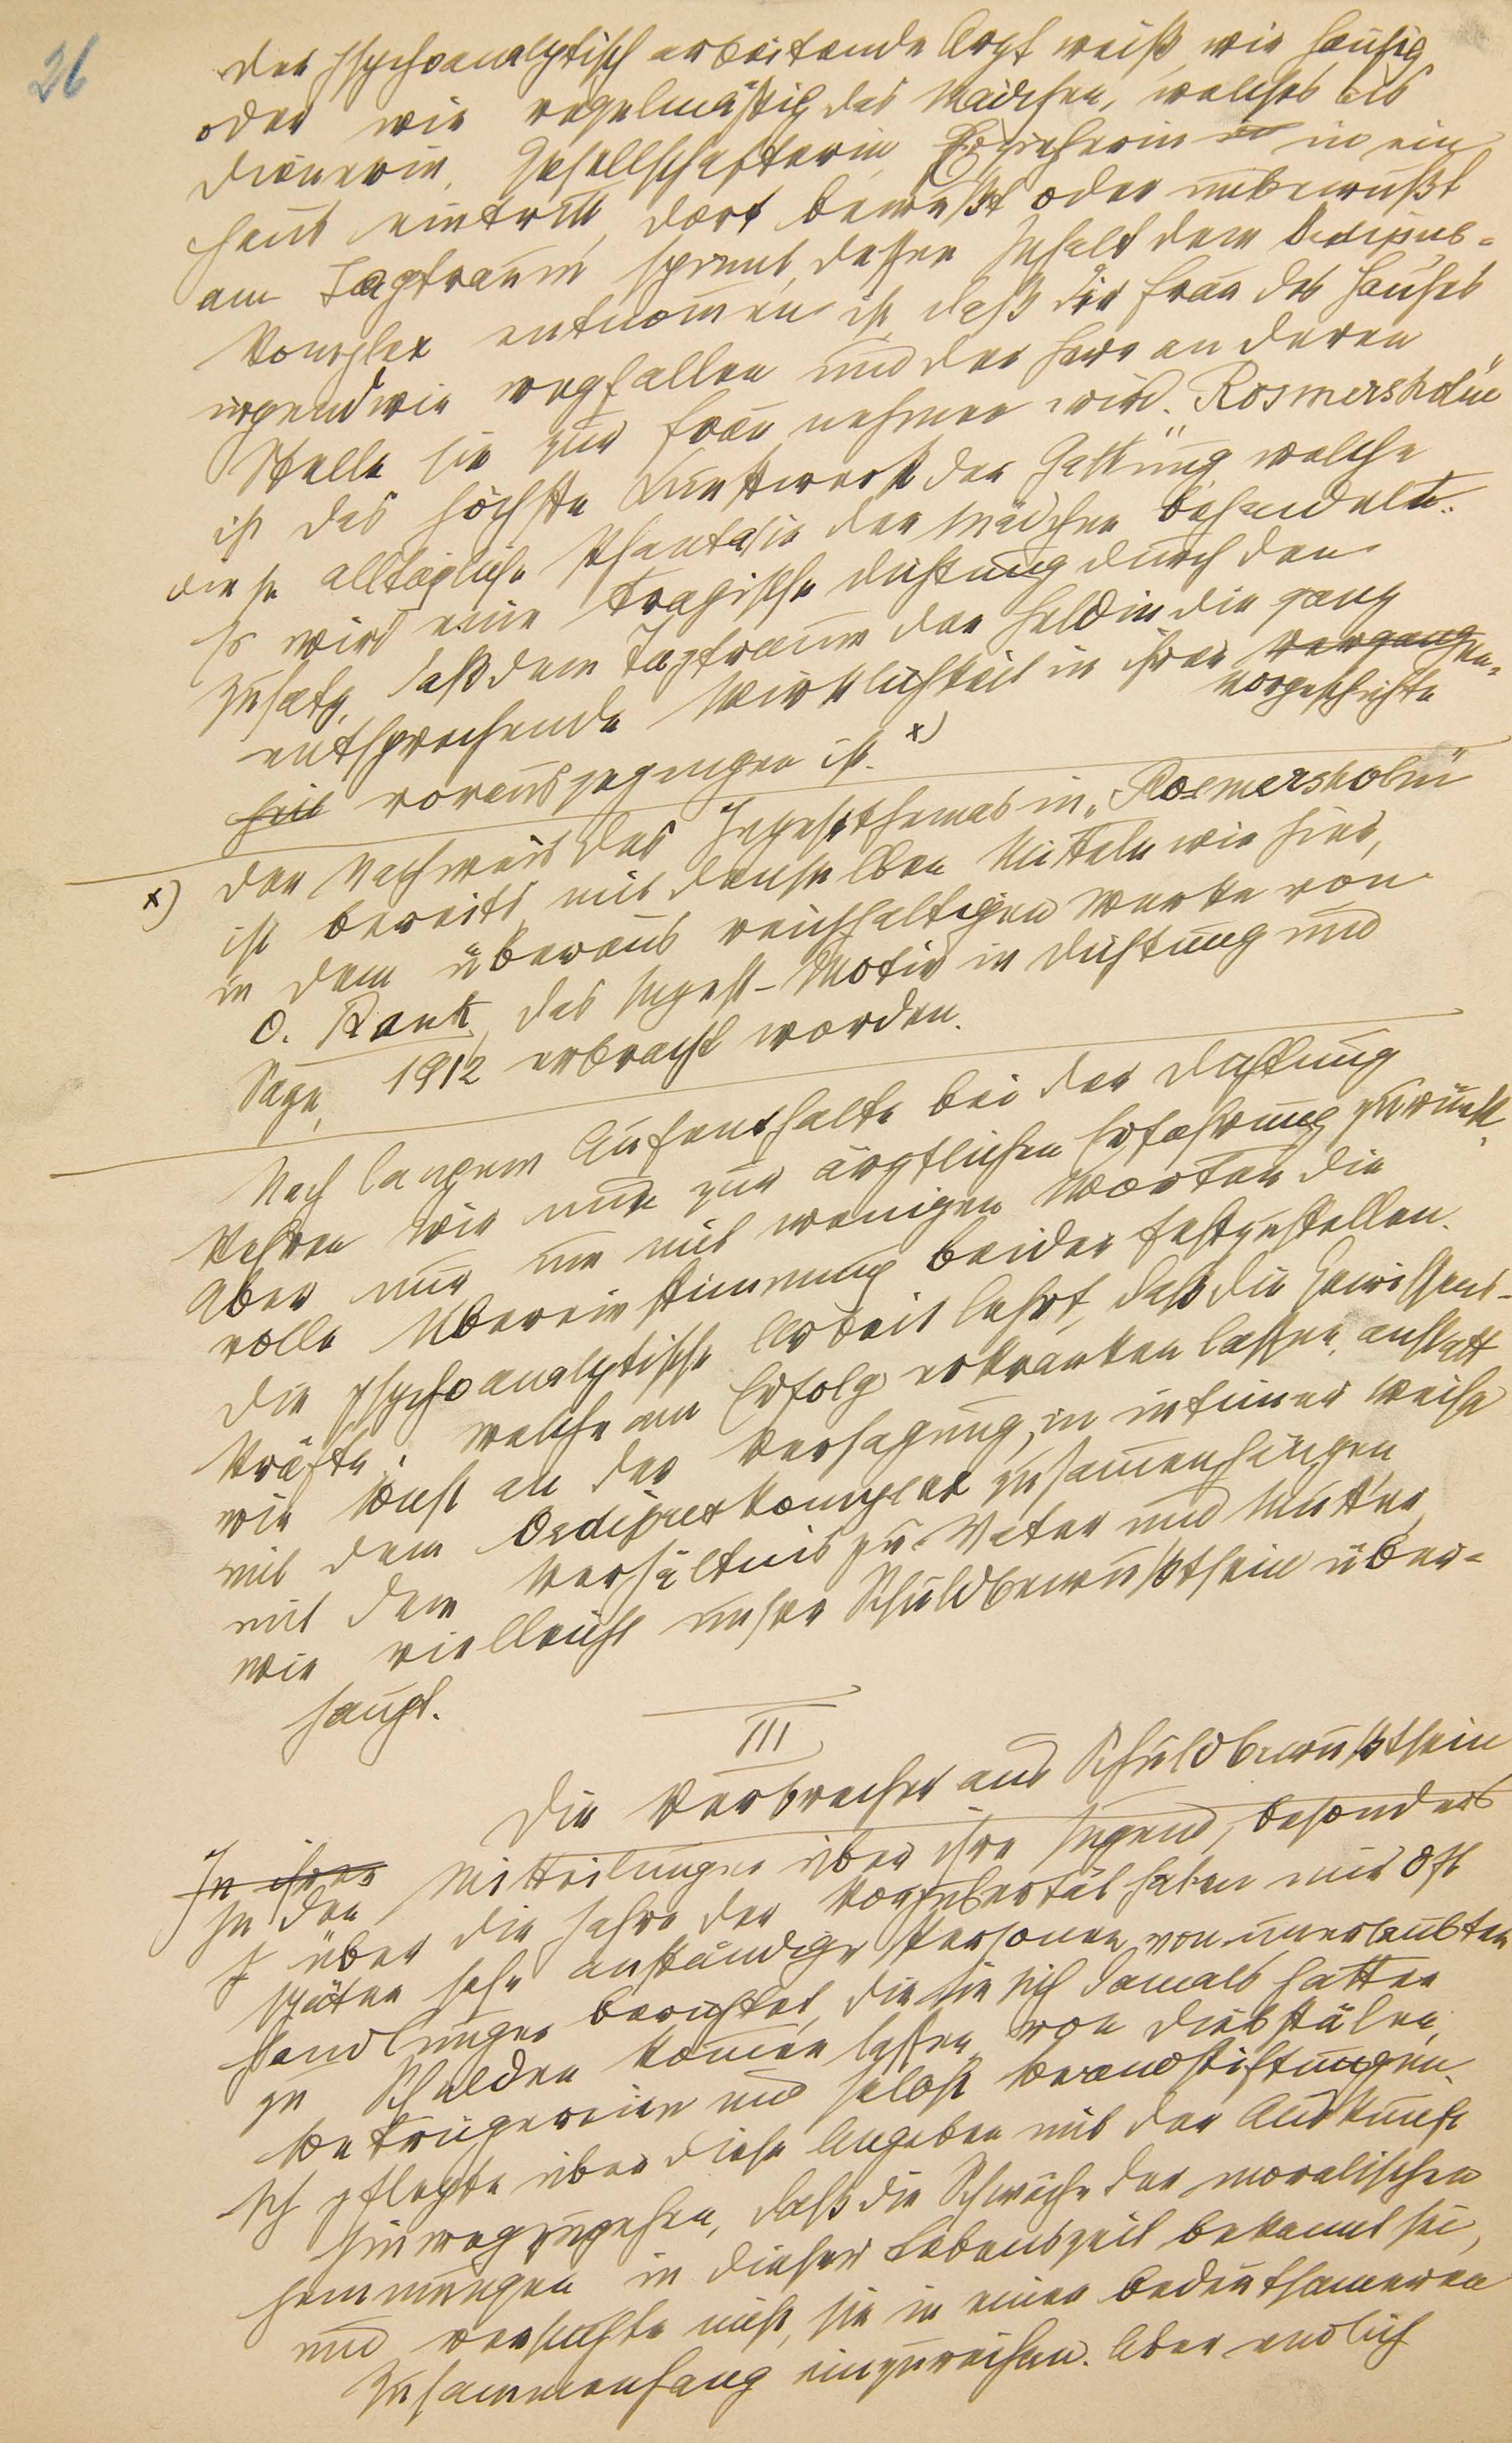 26
Der psychoanalytisch arbeitende Arzt weiß, wie häufig
oder wie regelmäßig das Mädchen, welches als
Dienerin, Gesellschafterin, Erzieherin in ein
Haus eintritt, dort bewußt oder unbewußt
am Tagtraum spinnt, dessen Inhalt dem Oedipus-
Komplex entnommen ist, daß die Frau des Hauses
irgendwie wegfallen und der Herr an deren
Stelle sie zur Frau nehmen wird. „Rosmersholm“
ist das höchste Kunstwerk der Gattung, welche
diese alltägliche Phantasie der Mädchen behandelt.
Es wird eine tragische Dichtung durch den
Zusatz, daß dem Tagtraum der Heldin die ganz
entsprechende Wirklichkeit in ihrer Vergangen-
Vorgeschichte
heit vorausgegangen ist. x)
x) Der Nachweis des Inzestthemas in „Rosmersholm“
ist bereits mit denselben Mitteln wie hier,
in dem überaus reichhaltigen Werke von
O. Rank, Das Inzest-Motiv in Dichtung und
Sage, 1912 erbracht worden.
Nach langem Aufenthalte bei der Dichtung
kehren wir nun zur ärztlichen Erfahrung zurück.
Aber nur um mit wenigen Worten die
volle Übereinstimmung beider festzustellen.
Die psychoanalytische Arbeit lehrt, daß die Gewissens-
kräfte, welche am Erfolg erkranken lassen, anstatt
wie sonst an der Versagung, in intimer Weise
mit dem Oedipuskomplex zusammenhängen
mit dem Verhältnis zu Vater und Mutter,
wie vielleicht unser Schuldbewußtsein über-
haupt.
III
Die Verbrecher aus Schuldbewußtsein
In ihrer
In den Mitteilungen über ihre Jugend, besonders
über die Jahre der Vorpubertät haben mir oft
später sehr anständige Personen von unerlaubten
Handlungen berichtet, die sie sich damals hatten
zu Schulden kommen lassen, von Diebstälen,
Betrügereien und selbst Brandstiftungen.
Ich pflegte über diese Angaben mit der Auskunft
hinwegzugehen, daß die Schwäche der moralischen
Hemmungen in dieser Lebenszeit bekannt sei,
und versuchte nicht, sie in einen bedeutsameren
Zusammenhang einzureihen. Aber endlich